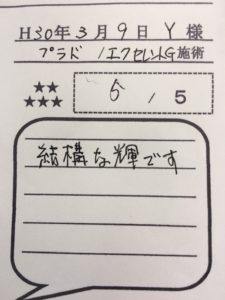 H30年3月9日 Y 様
プラド / エクセレントG施術
★★
★★★
5 / 5
結構な輝です